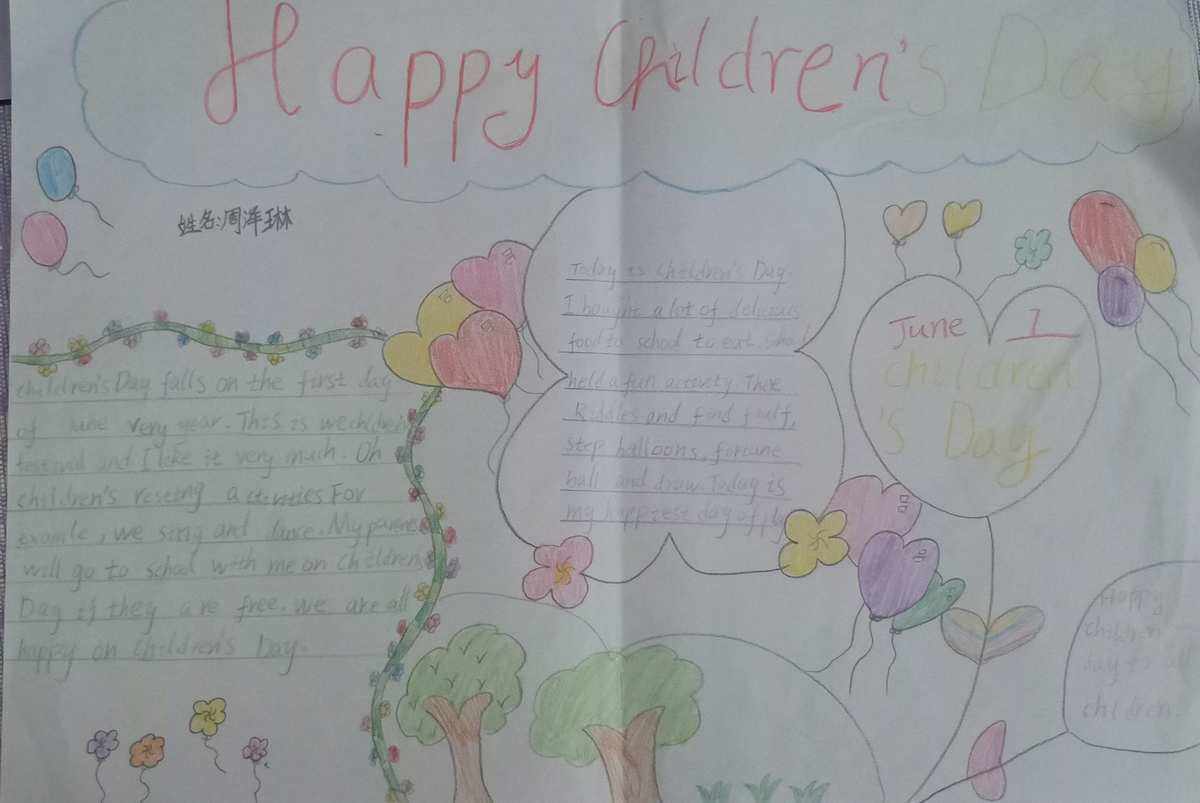 Happy Children's Day
姓名:周泽琳
Today is children's Day.
I bought a lot of
food to school to eat.
held a fun activity. There
Riddles and find fault,
step balloons, fortune
ball and draw. Today is
my happiest day of
June 1
children
's Day
children's Day falls on the first day
of June very year. This is we children's
festival and I like it very much. Oh
children's reseing activities For
examle, we sing and dance. My parents
will go to school with me on children's
Day if they are free. we are all
happy on Children's Day.
Happy
children
day to all
children.